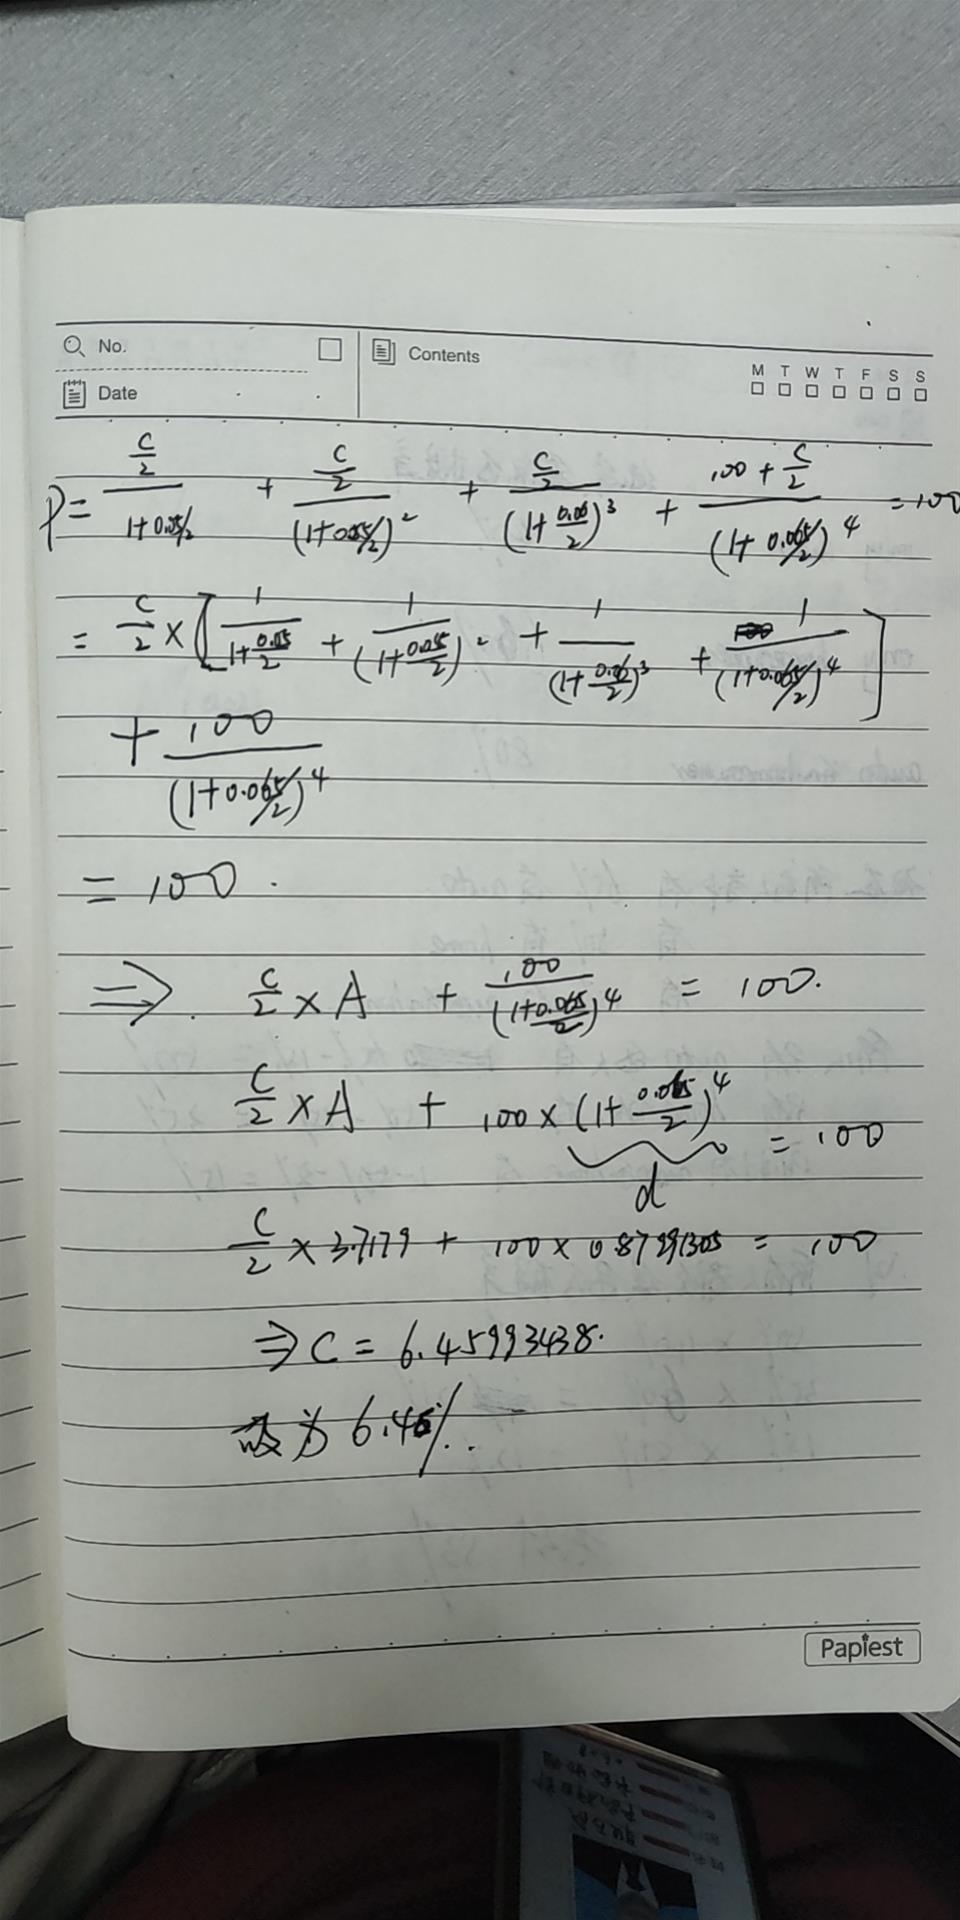 No.
Contents
M T W T F S S
Date
P = \frac{\frac{C}{2}}{1+0.05/2} + \frac{\frac{C}{2}}{(1+0.055/2)^2} + \frac{\frac{C}{2}}{(1+\frac{0.06}{2})^3} + \frac{100+\frac{C}{2}}{(1+0.065/2)^4} = 100
= \frac{C}{2} × [\frac{1}{1+\frac{0.05}{2}} + \frac{1}{(1+\frac{0.055}{2})^2} + \frac{1}{(1+\frac{0.06}{2})^3} + \frac{1}{(1+0.065/2)^4}]
+ \frac{100}{(1+0.065/2)^4}
= 100.
⇒ \frac{C}{2} × A + \frac{100}{(1+\frac{0.065}{2})^4} = 100.
\frac{C}{2} × A + 100 × (1+\frac{0.065}{2})^4 = 100
d
\frac{C}{2} × 3.7179 + 100 × 0.87991305 = 100
⇒ C = 6.45993438.
6.46%.
Papiest